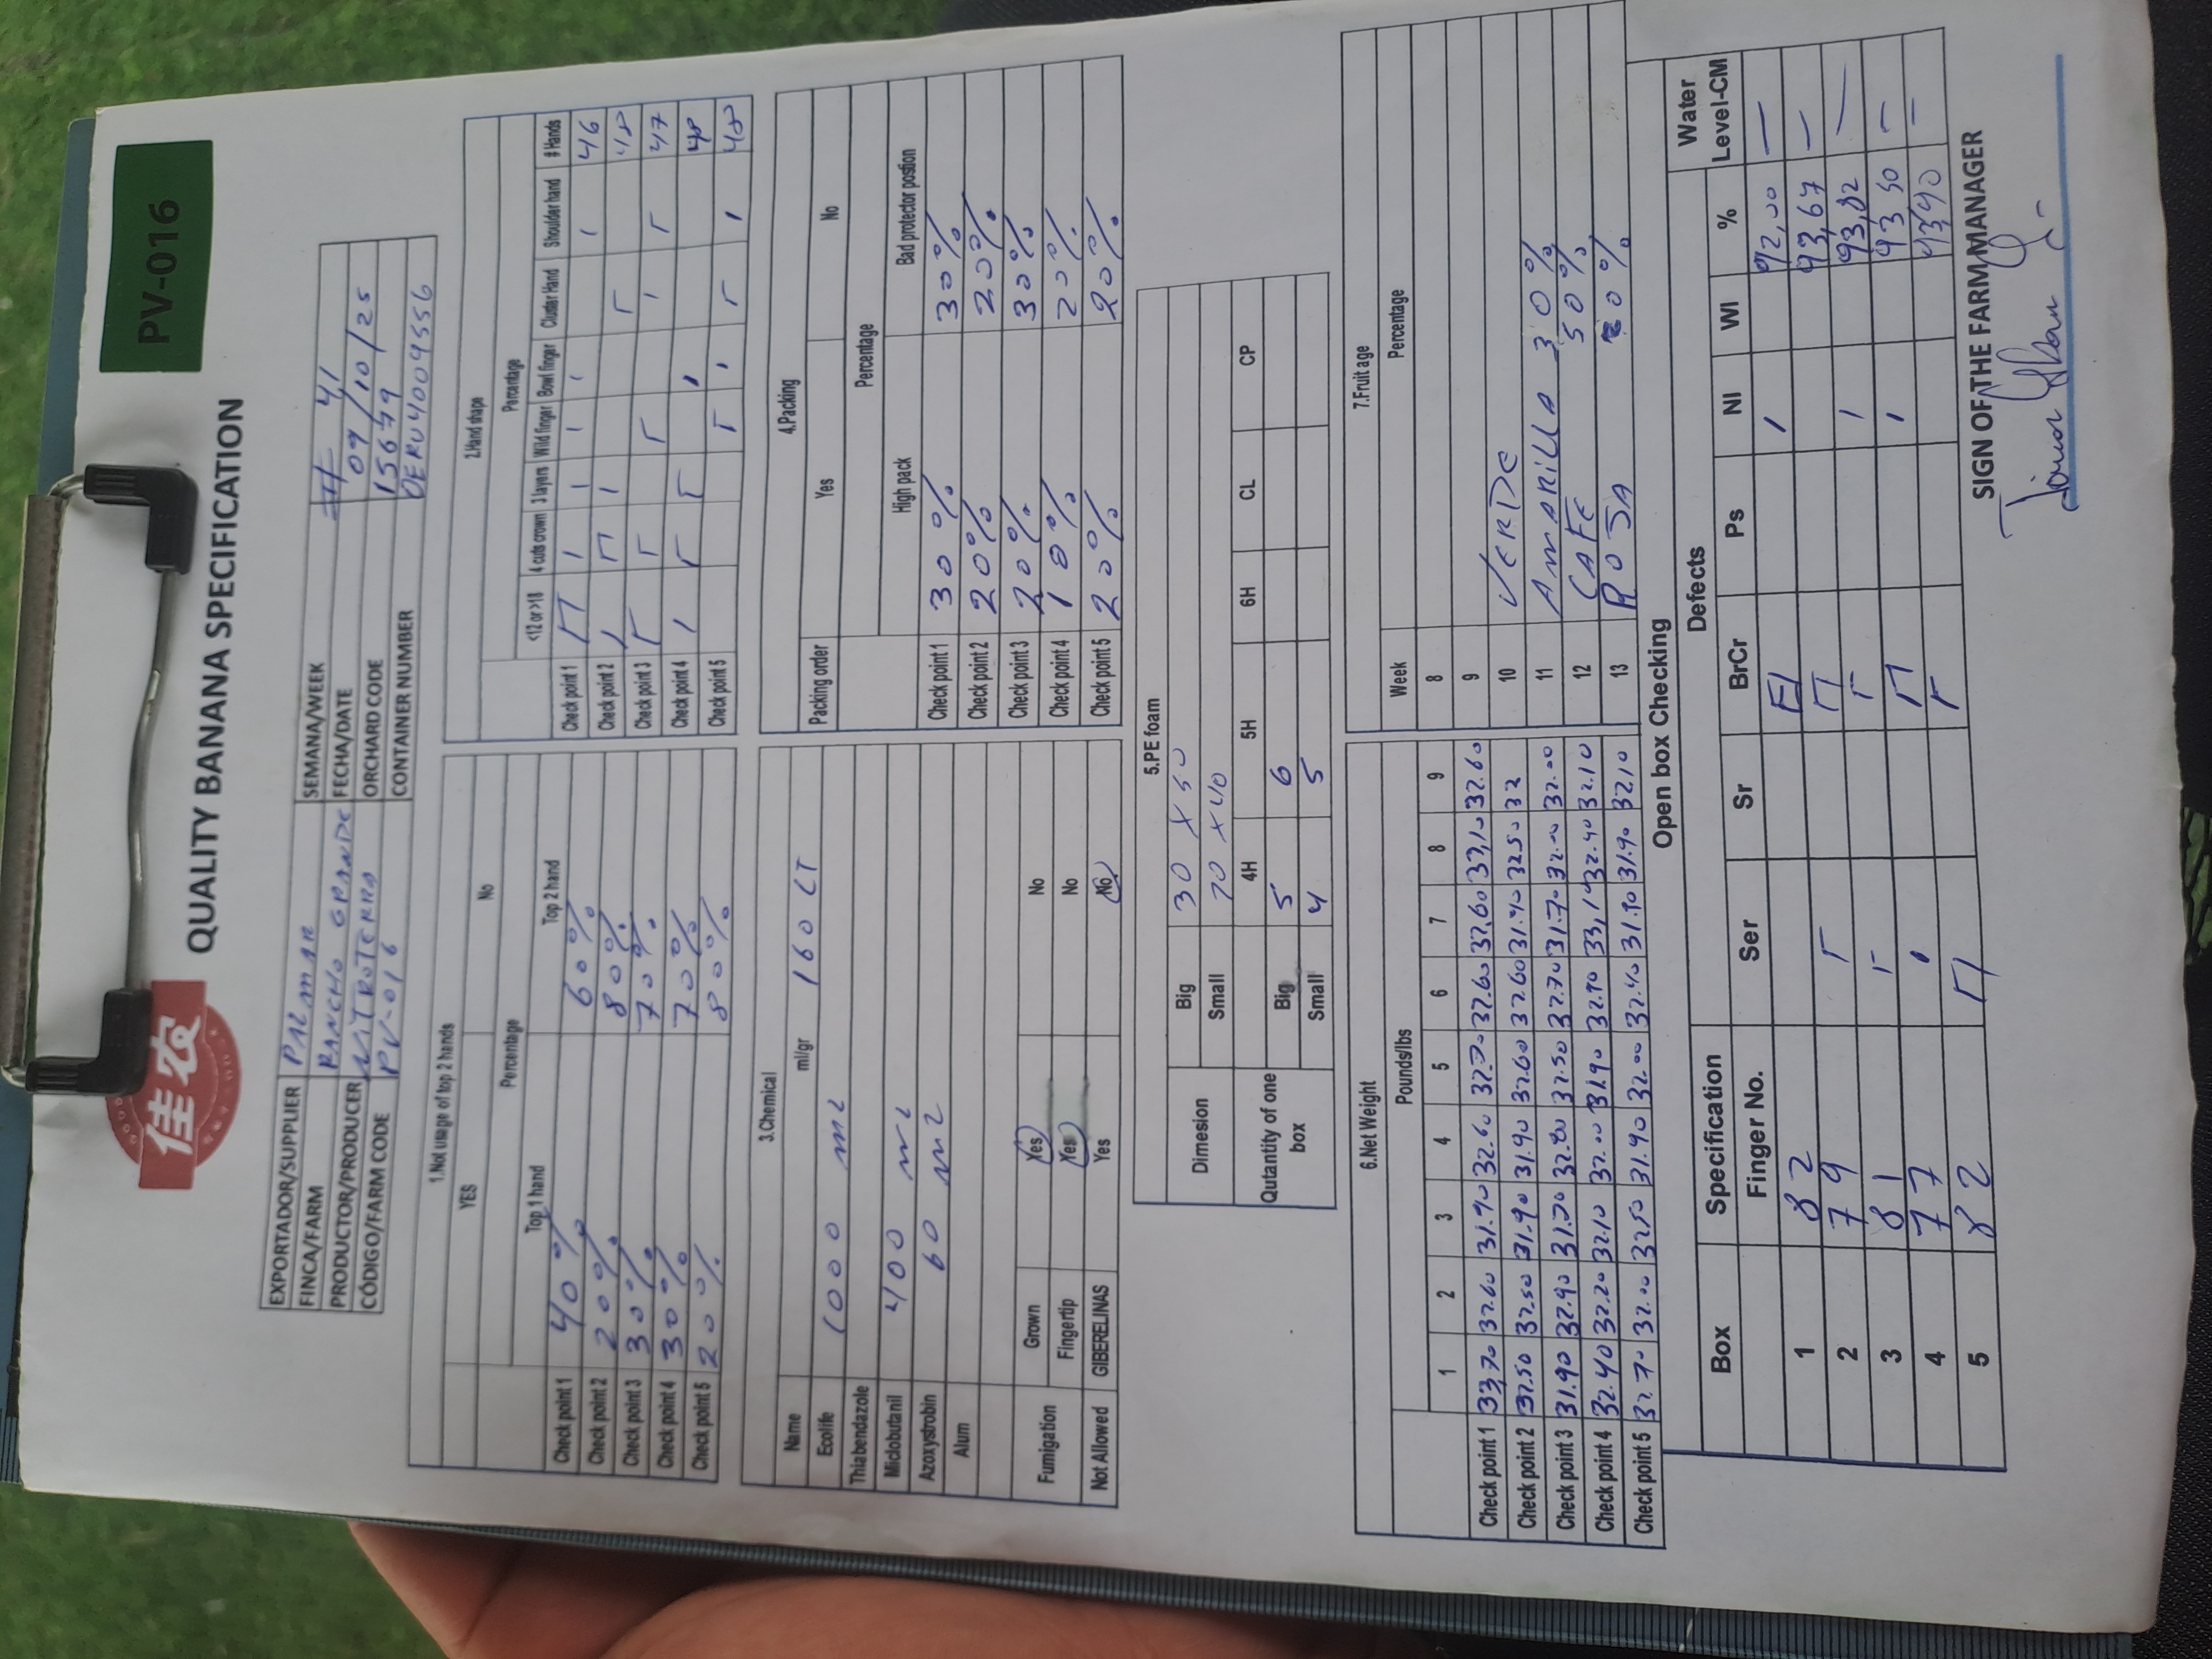 佳农
PV-016
QUALITY BANANA SPECIFICATION
EXPORTADOR/SUPPLIER PALMAR SEMANA/WEEK # 41
FINCA/FARM RANCHO GRANDE FECHA/DATE 09/10/25
PRODUCTOR/PRODUCER NITROTERRA ORCHARD CODE 15679
CÓDIGO/FARM CODE PV-016 CONTAINER NUMBER
1.Not usage of top 2 hands
YES No
Percentage
Top 1 hand Top 2 hand
Check point 1 40% 60%
Check point 2 20% 80%
Check point 3 30% 70%
Check point 4 30% 70%
Check point 5 20% 80%
2.Hand shape
Percentage
<12 or >18 4 cuts crown 3 layers Wild finger Bowl finger Cluster Hand Shoulder hand # Hands
Check point 1 46
Check point 2 48
Check point 3 47
Check point 4 48
Check point 5 48
3.Chemical
Name ml/gr 160 LT
Ecolife 1000 ml
Thiabendazole
Miclobutanil 400 ml
Azoxystrobin 60 ml
Alum
Fumigation Grown Yes No
Fingertip Yes No
Not Allowed GIBERELINAS Yes No
4.Packing
Packing order Yes No
Percentage
High pack Bad protector postion
Check point 1 30% 30%
Check point 2 20% 20%
Check point 3 20% 30%
Check point 4 10% 20%
Check point 5 20% 20%
5.PE foam
Dimesion Big 30 X 50
Small X 40
Qutantity of one box 4H 5H 6H CL CP
Big 5 6
Small 4 5
6.Net Weight
Pounds/lbs
1 2 3 4 5 6 7 8 9
Check point 1 33,70 32.60 31.90 32.60 32.70 32.60 32,60 33,10 32.60
Check point 2 32.50 32.50 31.90 31.90 32.60 32.60 31.90 32.50 32
Check point 3 31.90 32.90 31.70 32.80 32.50 32.70 31.70 32.00 32.00
Check point 4 32.40 32.20 32.10 32.00 31.90 32.90 33,10 32.40 32.10
Check point 5 32.70 32.00 32.50 31.90 32.00 32.40 31.90 31.90 32.10
7.Fruit age
Week Percentage
8
9
10 VERDE
11 AMARILLA 30%
12 CAFE 50%
13 ROSA 20%
Open box Checking
Box Specification Defects Water Level-CM
Finger No. Ser Sr BrCr Ps NI WI %
1 82 92,00 —
2 79 93,67 —
3 81 93,82 —
4 77 93 50 —
5 82 —
SIGN OF THE FARM MANAGER